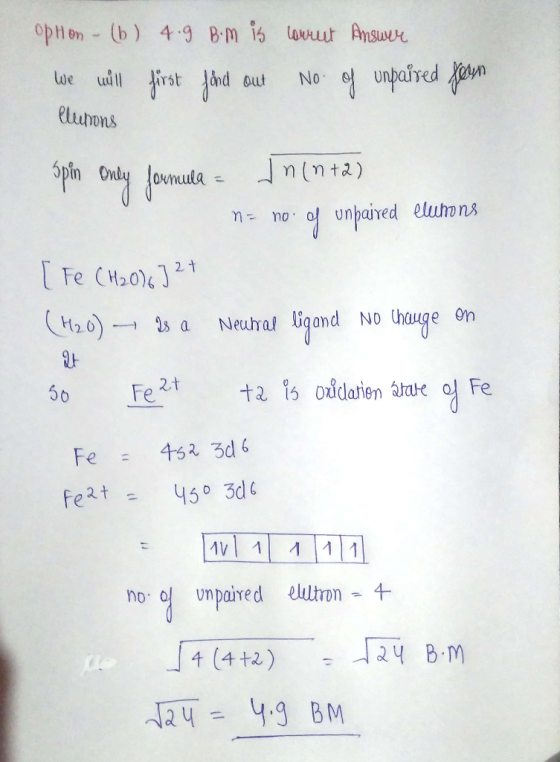 Option - (b) 4.9 B.M is correct Answer
We will first find out No. of unpaired
electrons
Spin only formula = √n(n+2)
n = no. of unpaired electrons
[Fe (H2O)6]2+
(H2O) → Is a Neutral ligand NO Charge on
It
So Fe2+ +2 is oxidation state of Fe
Fe = 4s2 3d6
Fe2+ = 4s0 3d6
= 1V 1 1 1 1
no. of unpaired electron = 4
√4(4+2) = √24 B.M
√24 = 4.9 BM